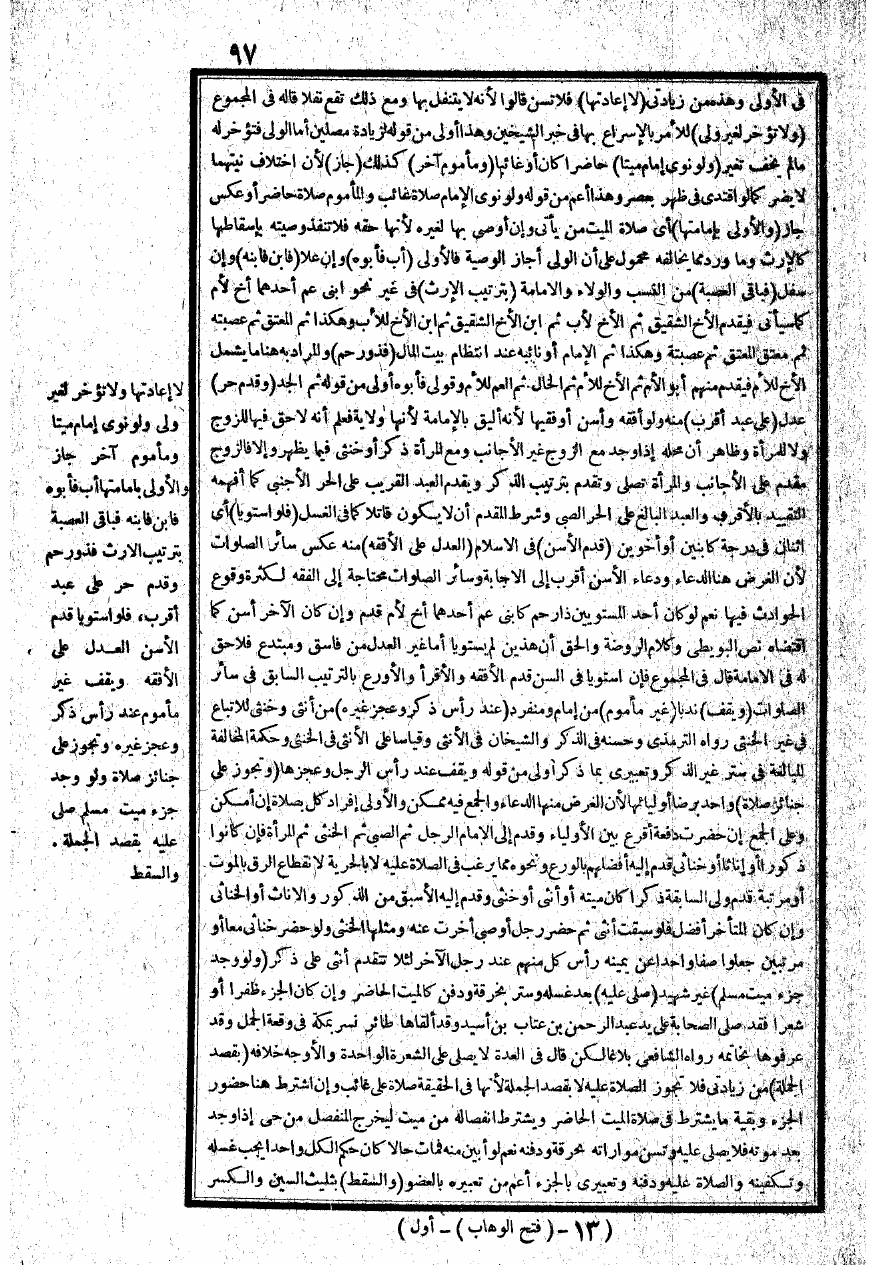 ٩٧
فى الأولى وهذه من زيادتى (لا إعادتها) فلا تسن قالوا لأنه لا يتنفل بها ومع ذلك تقع نفلا قاله فى المجموع
(ولا تؤخر لغير ولى) للأمر بالإسراع بها فى خبر الشيخين وهذا أولى من قوله لزيادة مصلين أما الولى فتؤخر له
مالم يخف تغير (ولو نوى إمام ميتا) حاضرا كان أو غائبا (ومأموم آخر) كذلك (جاز) لأن اختلاف نيتهما
لا يضر كما لو اقتدى فى ظهر بعصر وهذا أعم من قوله ولو نوى الإمام صلاة غائب والمأموم صلاة حاضر أو عكس
جاز (والأولى بإمامتها) أى صلاة الميت من يأتى وإن أوصى بها لغيره لأنها حقه فلا تنفذ وصيته بإسقاطها
كالإرث وما ورد مما يخالفه محمول على أن الولى أجاز الوصية فالأولى (أب فأبوه) وإن علا (فابن فابنه) وإن
سفل (فباقى العصبة) من النسب والولاء والامامة (بترتيب الإرث) فى غير نحو ابنى عم أحدهما أخ لأم
كما سيأتى فيقدم الأخ الشقيق ثم الأخ لأب ثم ابن الأخ الشقيق ثم ابن الأخ للأب وهكذا ثم المعتق ثم عصبته
ثم معتق المعتق ثم عصبته وهكذا ثم الإمام أو نائبه عند انتظام بيت المال (فذو رحم) والمراد به هنا ما يشمل
الأخ للأم فيقدم منهم أبو الأم ثم الأخ للأم ثم الخال ثم العم للأم وقولى فأبوه أولى من قوله ثم الجد (وقدم حر)
عدل (على عبد أقرب) منه ولو أفقه وأسن أو فقيها لأنه أليق بالإمامة لأنها ولاية فعلم أنه لا حق فيها للزوج
ولا للمرأة وظاهر أن محله إذا وجد مع الزوج غير الأجانب ومع المرأة ذكر أو خنثى فيما يظهر وإلا فالزوج
مقدم على الأجانب والمرأة تصلى وتقدم بترتيب الذكر ويقدم العبد القريب على الحر الأجنبى كما أفهمه
التقييد بالأقرب والعبد البالغ على الحر الصبى وشرط المقدم أن لا يكون قاتلا كما فى الغسل (فلو استويا) أى
اثنان فى درجة كابنين أو أخوين (قدم الأسن) فى الاسلام (العدل على الأفقه) منه عكس سائر الصلوات
لأن الغرض هنا الدعاء ودعاء الأسن أقرب إلى الاجابة وسائر الصلوات محتاجة إلى الفقه لكثرة وقوع
الحوادث فيها نعم لو كان أحد المستويين ذا رحم كابنى عم أحدهما أخ لأم قدم وإن كان الآخر أسن كما
اقتضاه نص البويطى وكلام الروضة والحق أن هذين لم يستويا أما غير العدل من فاسق ومبتدع فلا حق
له فى الامامة قال فى المجموع فإن استويا فى السن قدم الأفقه والأقرأ والأورع بالترتيب السابق فى سائر
الصلوات (ويقف) ندبا (غير مأموم) من إمام ومنفرد (عند رأس ذكر وعجز غيره) من أنثى وخنثى للاتباع
فى غير الخنثى رواه الترمذى وحسنه فى الذكر والشيخان فى الأنثى وقياسا على الأنثى فى الخنثى وحكمة المخالفة
المبالغة فى ستر غير الذكر وتعبيرى بما ذكر أولى من قوله ويقف عند رأس الرجل وعجزها (وتجوز على
جنائز صلاة) واحد برضا أوليائها لأن الغرض منها الدعاء والجمع فيه ممكن والأولى إفراد كل بصلاة إن أمكن
وعلى الجمع إن حضرت دفعة أقرع بين الأولياء وقدم إلى الامام الرجل ثم الصبى ثم الخنثى ثم المرأة فإن كانوا
ذكورا أو إناثا أو خناثى قدم إليه أفضلهم بالورع ونحوه مما يرغب فى الصلاة عليه لا بالحرية لانقطاع الرق بالموت
أو مرتبة قدم ولى السابقة ذكرا كان ميته أو أنثى أو خنثى وقدم إليه الأسبق من الذكور والاناث أو الخناثى
وإن كان المتأخر أفضل فلو سبقت أنثى ثم حضر رجل أو صبى أخرت عنه ومثلها الخنثى ولو حضر خناثى معا أو
مرتبين جعلوا صفا واحدا عن يمينه رأس كل منهم عند رجل الآخر لئلا تتقدم أنثى على ذكر (ولو وجد
جزء ميت مسلم) غير شهيد (صلى عليه) بعد غسله وستر بخرقة ودفن كالميت الحاضر وإن كان الجزء ظفرا أو
شعرا فقد صلى الصحابة على يد عبد الرحمن بن عتاب بن أسيد وقد ألقاها طائر نسر بمكة فى وقعة الجمل وقد
عرفوها بخاتمه رواه الشافعى بلاغا لكن قال فى العدة لا يصلى على الشعرة الواحدة والأوجه خلافه (بقصد
الجملة) من زيادتى فلا تجوز الصلاة عليه لا بقصد الجملة لأنها فى الحقيقة صلاة على غائب وإن اشترط هنا حضور
الجزء وبقية ما يشترط فى صلاة الميت الحاضر ويشترط انفصاله من ميت ليخرج المنفصل من حى إذا وجد
بعد موته فلا يصلى عليه وتسن مواراته بخرقة ودفنه نعم لو أبين منه فمات حالا كان حكم الكل واحدا يجب غسله
وتكفينه والصلاة عليه ودفنه وتعبيرى بالجزء أعم من تعبيره بالعضو (والسقط) بتثليث السين والكسر
لا إعادتها ولا تؤخر لغير
ولى ولو نوى إمام ميتا
ومأموم آخر جاز
والأولى بإمامتها أب فأبوه
فابن فابنه فباقى العصبة
بترتيب الارث فذو رحم
وقدم حر على عبد
أقرب، فلو استويا قدم
الأسن العدل على
الأفقه ويقف غير
مأموم عند رأس ذكر
وعجز غيره وتجوز على
جنائز صلاة ولو وجد
جزء ميت مسلم صلى
عليه بقصد الجملة.
والسقط
(١٣ - (فتح الوهاب) - أول)